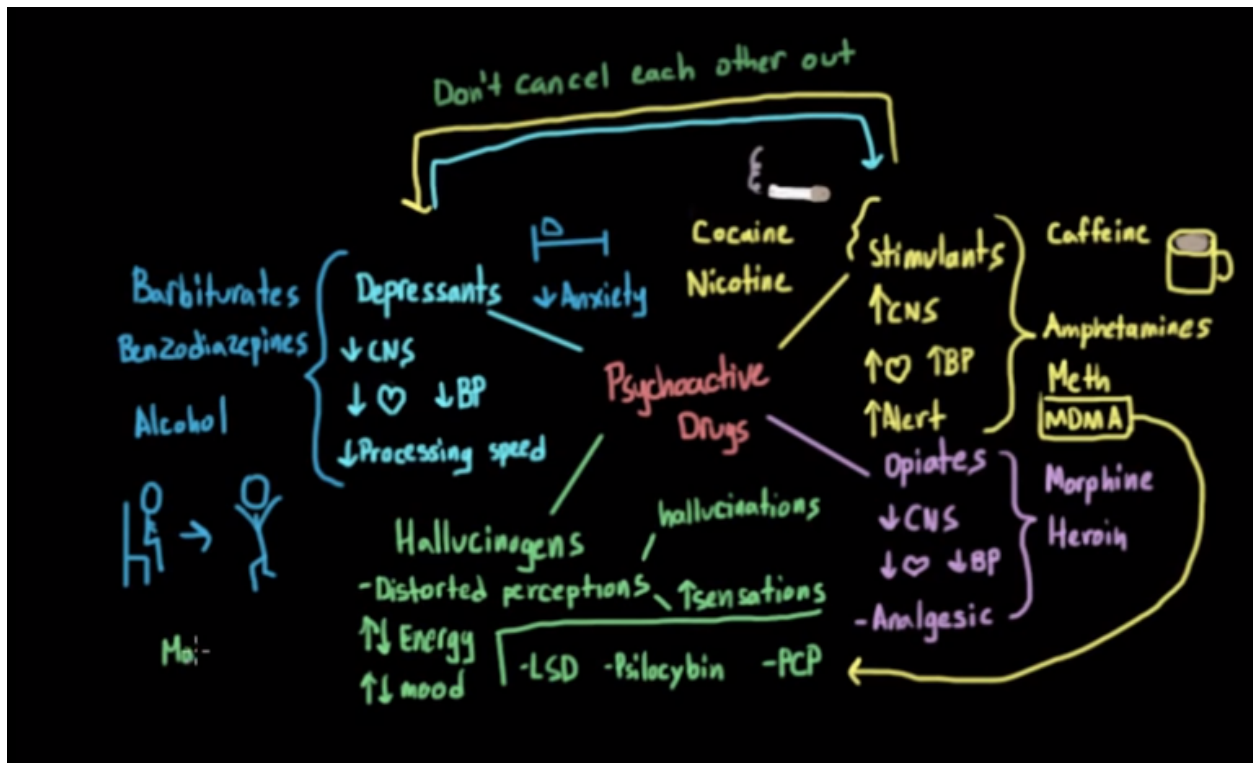 Don't cancel each other out
Barbiturates
Benzodiazepines
Alcohol
Depressants
↓CNS
↓♡ ↓BP
↓Processing speed
↓Anxiety
Cocaine
Nicotine
Stimulants
↑CNS
↑♡ ↑BP
↑Alert
Caffeine
Amphetamines
Meth
MDMA
Psychoactive
Drugs
Opiates
↓CNS
↓♡ ↓BP
-Analgesic
Morphine
Heroin
Hallucinogens
-Distorted perceptions
hallucinations
↑sensations
↑↓ Energy
↑↓ mood
-LSD -Psilocybin -PCP
Mo